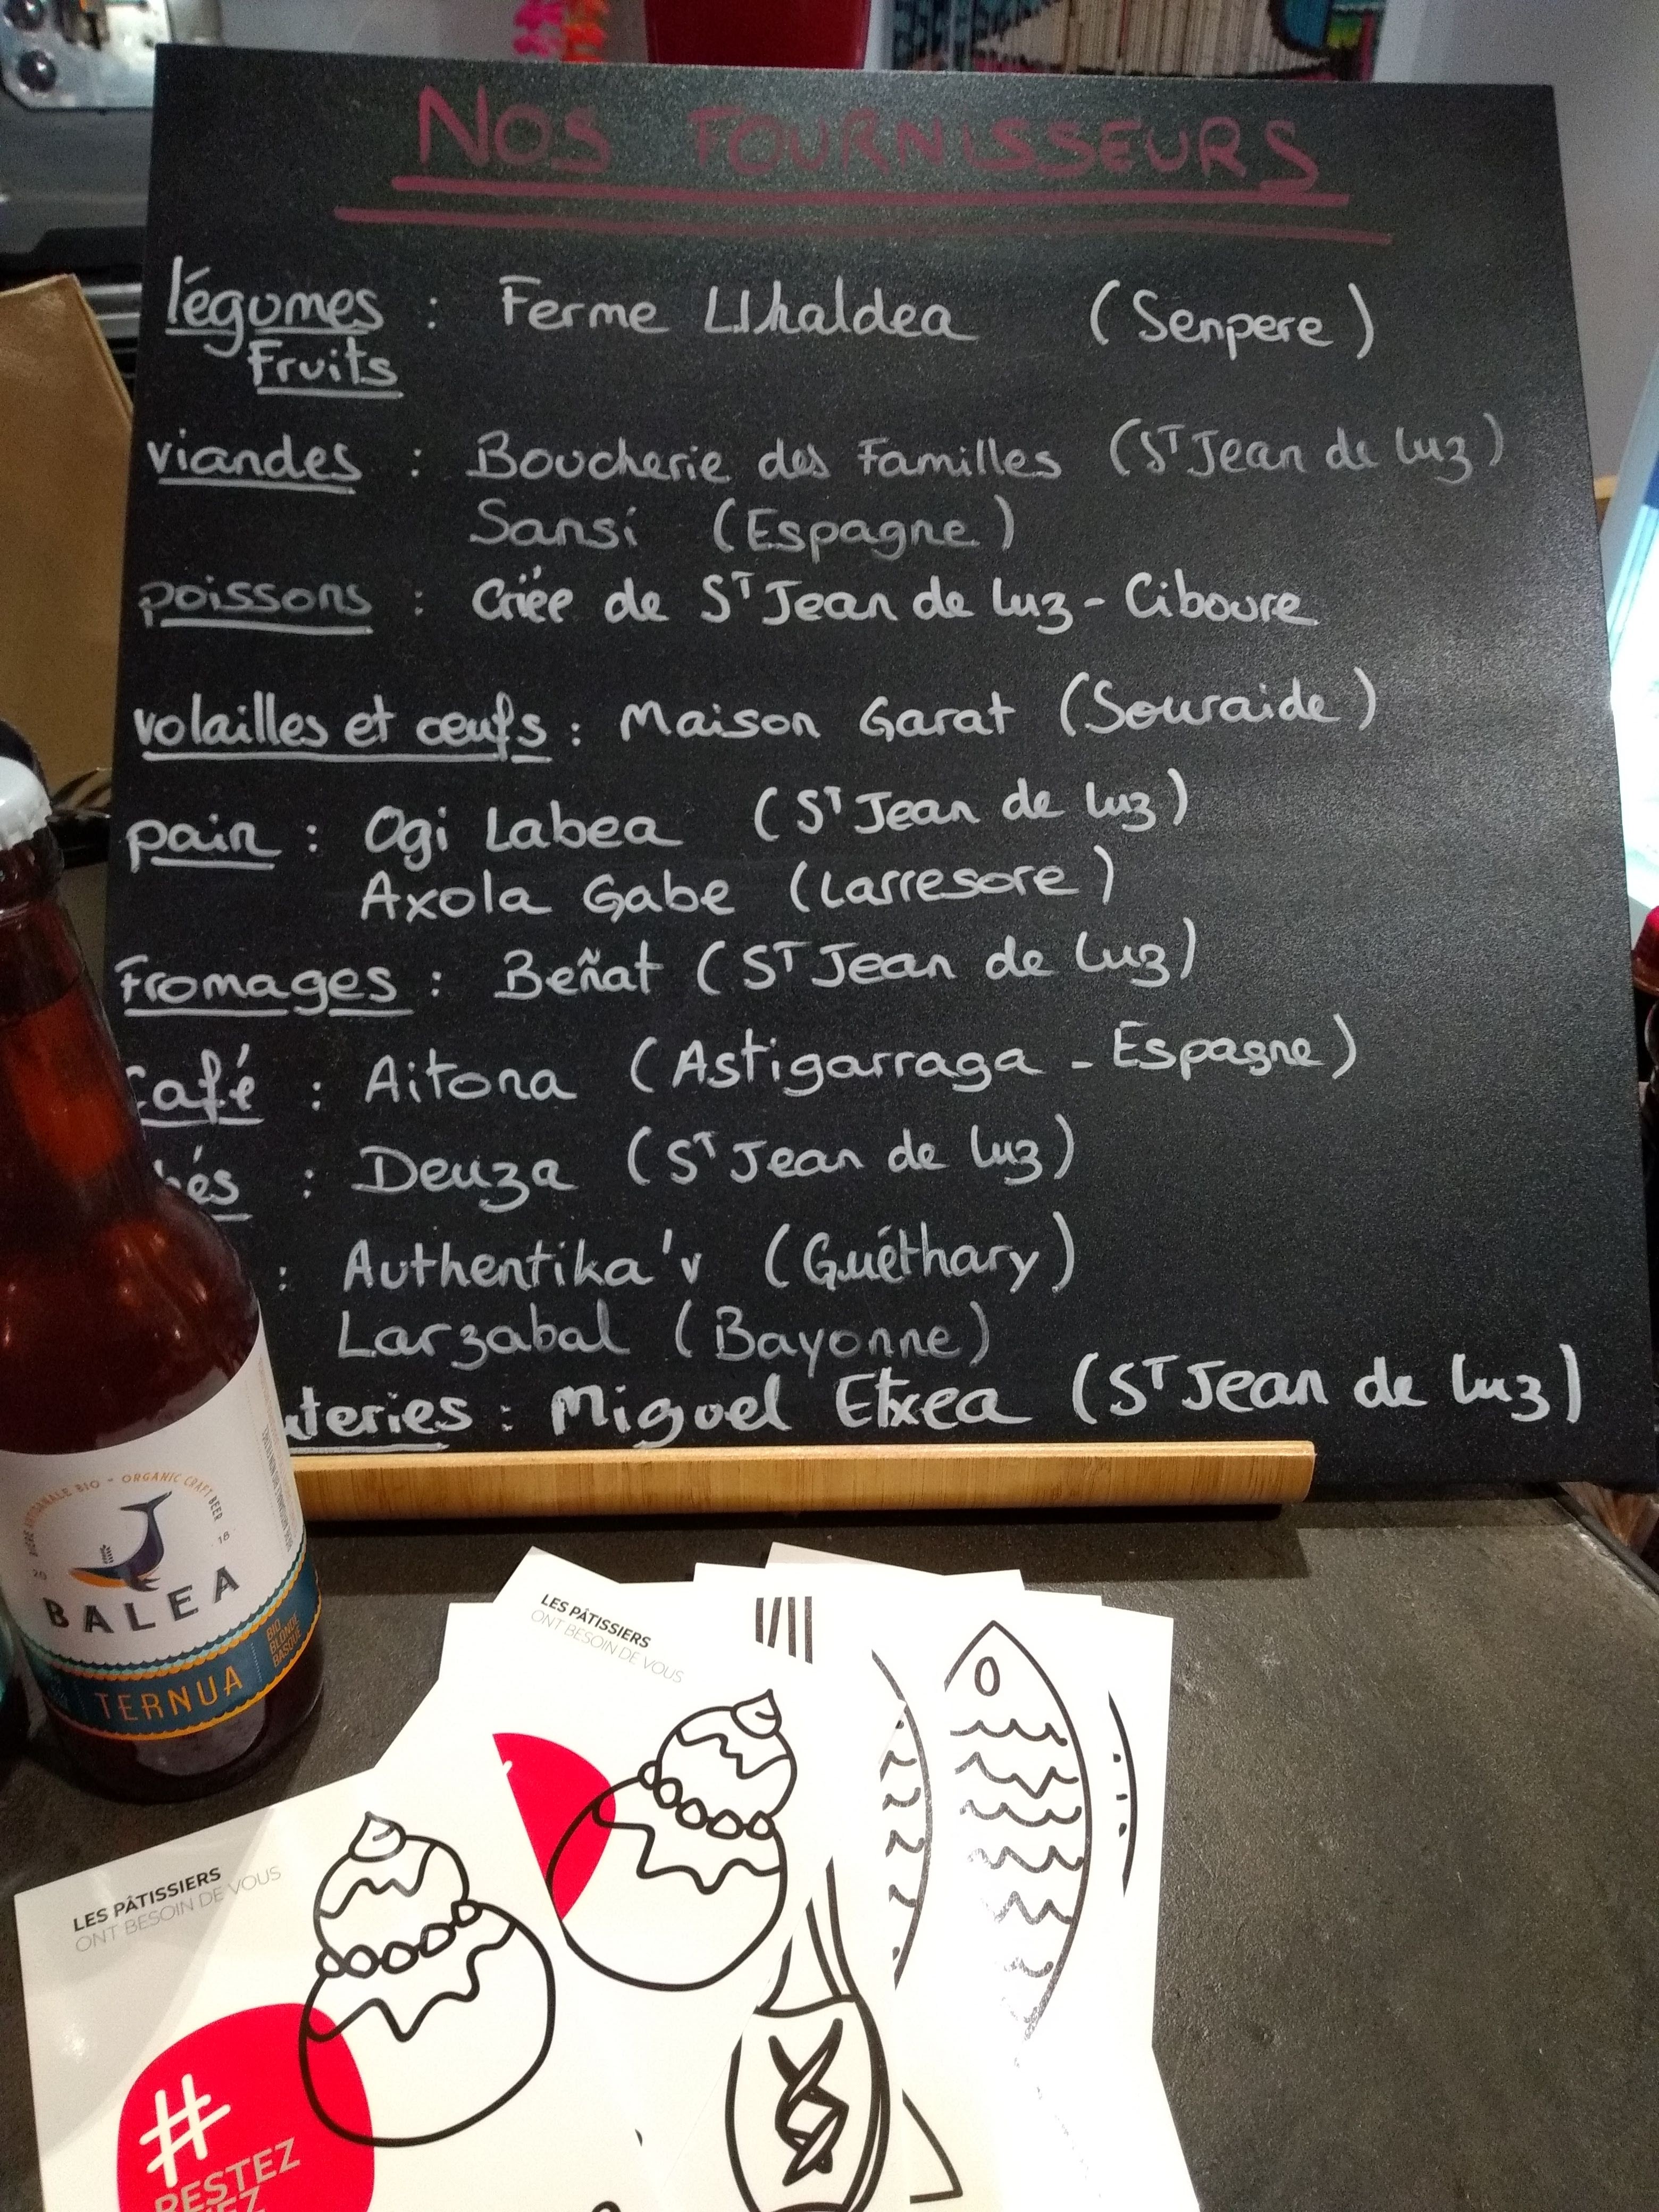 NOS FOURNISSEURS
légumes : Ferme Uhaldea (Senpere)
Fruits
viandes : Boucherie des Familles (ST Jean de Luz)
Sansi (Espagne)
poissons : Criée de ST Jean de Luz - Ciboure
volailles et œufs : Maison Garat (Souraide)
pain : Ogi Labea (ST Jean de Luz)
Axola Gabe (Larresore)
Fromages : Beñat (ST Jean de Luz)
Café : Aitona (Astigarraga - Espagne)
hés : Deuza (ST Jean de Luz)
: Authentika'v (Guéthary)
Larzabal (Bayonne)
uteries : Miguel Etxea (ST Jean de Luz)
BIÈRE ARTISANALE BIO - ORGANIC CRAFT BEER
20 18
BALEA
TERNUA
BIO
BLONDE
BASQUE
LES PÂTISSIERS
ONT BESOIN DE VOUS
LES PÂTISSIERS
ONT BESOIN DE VOUS
#
RESTEZ